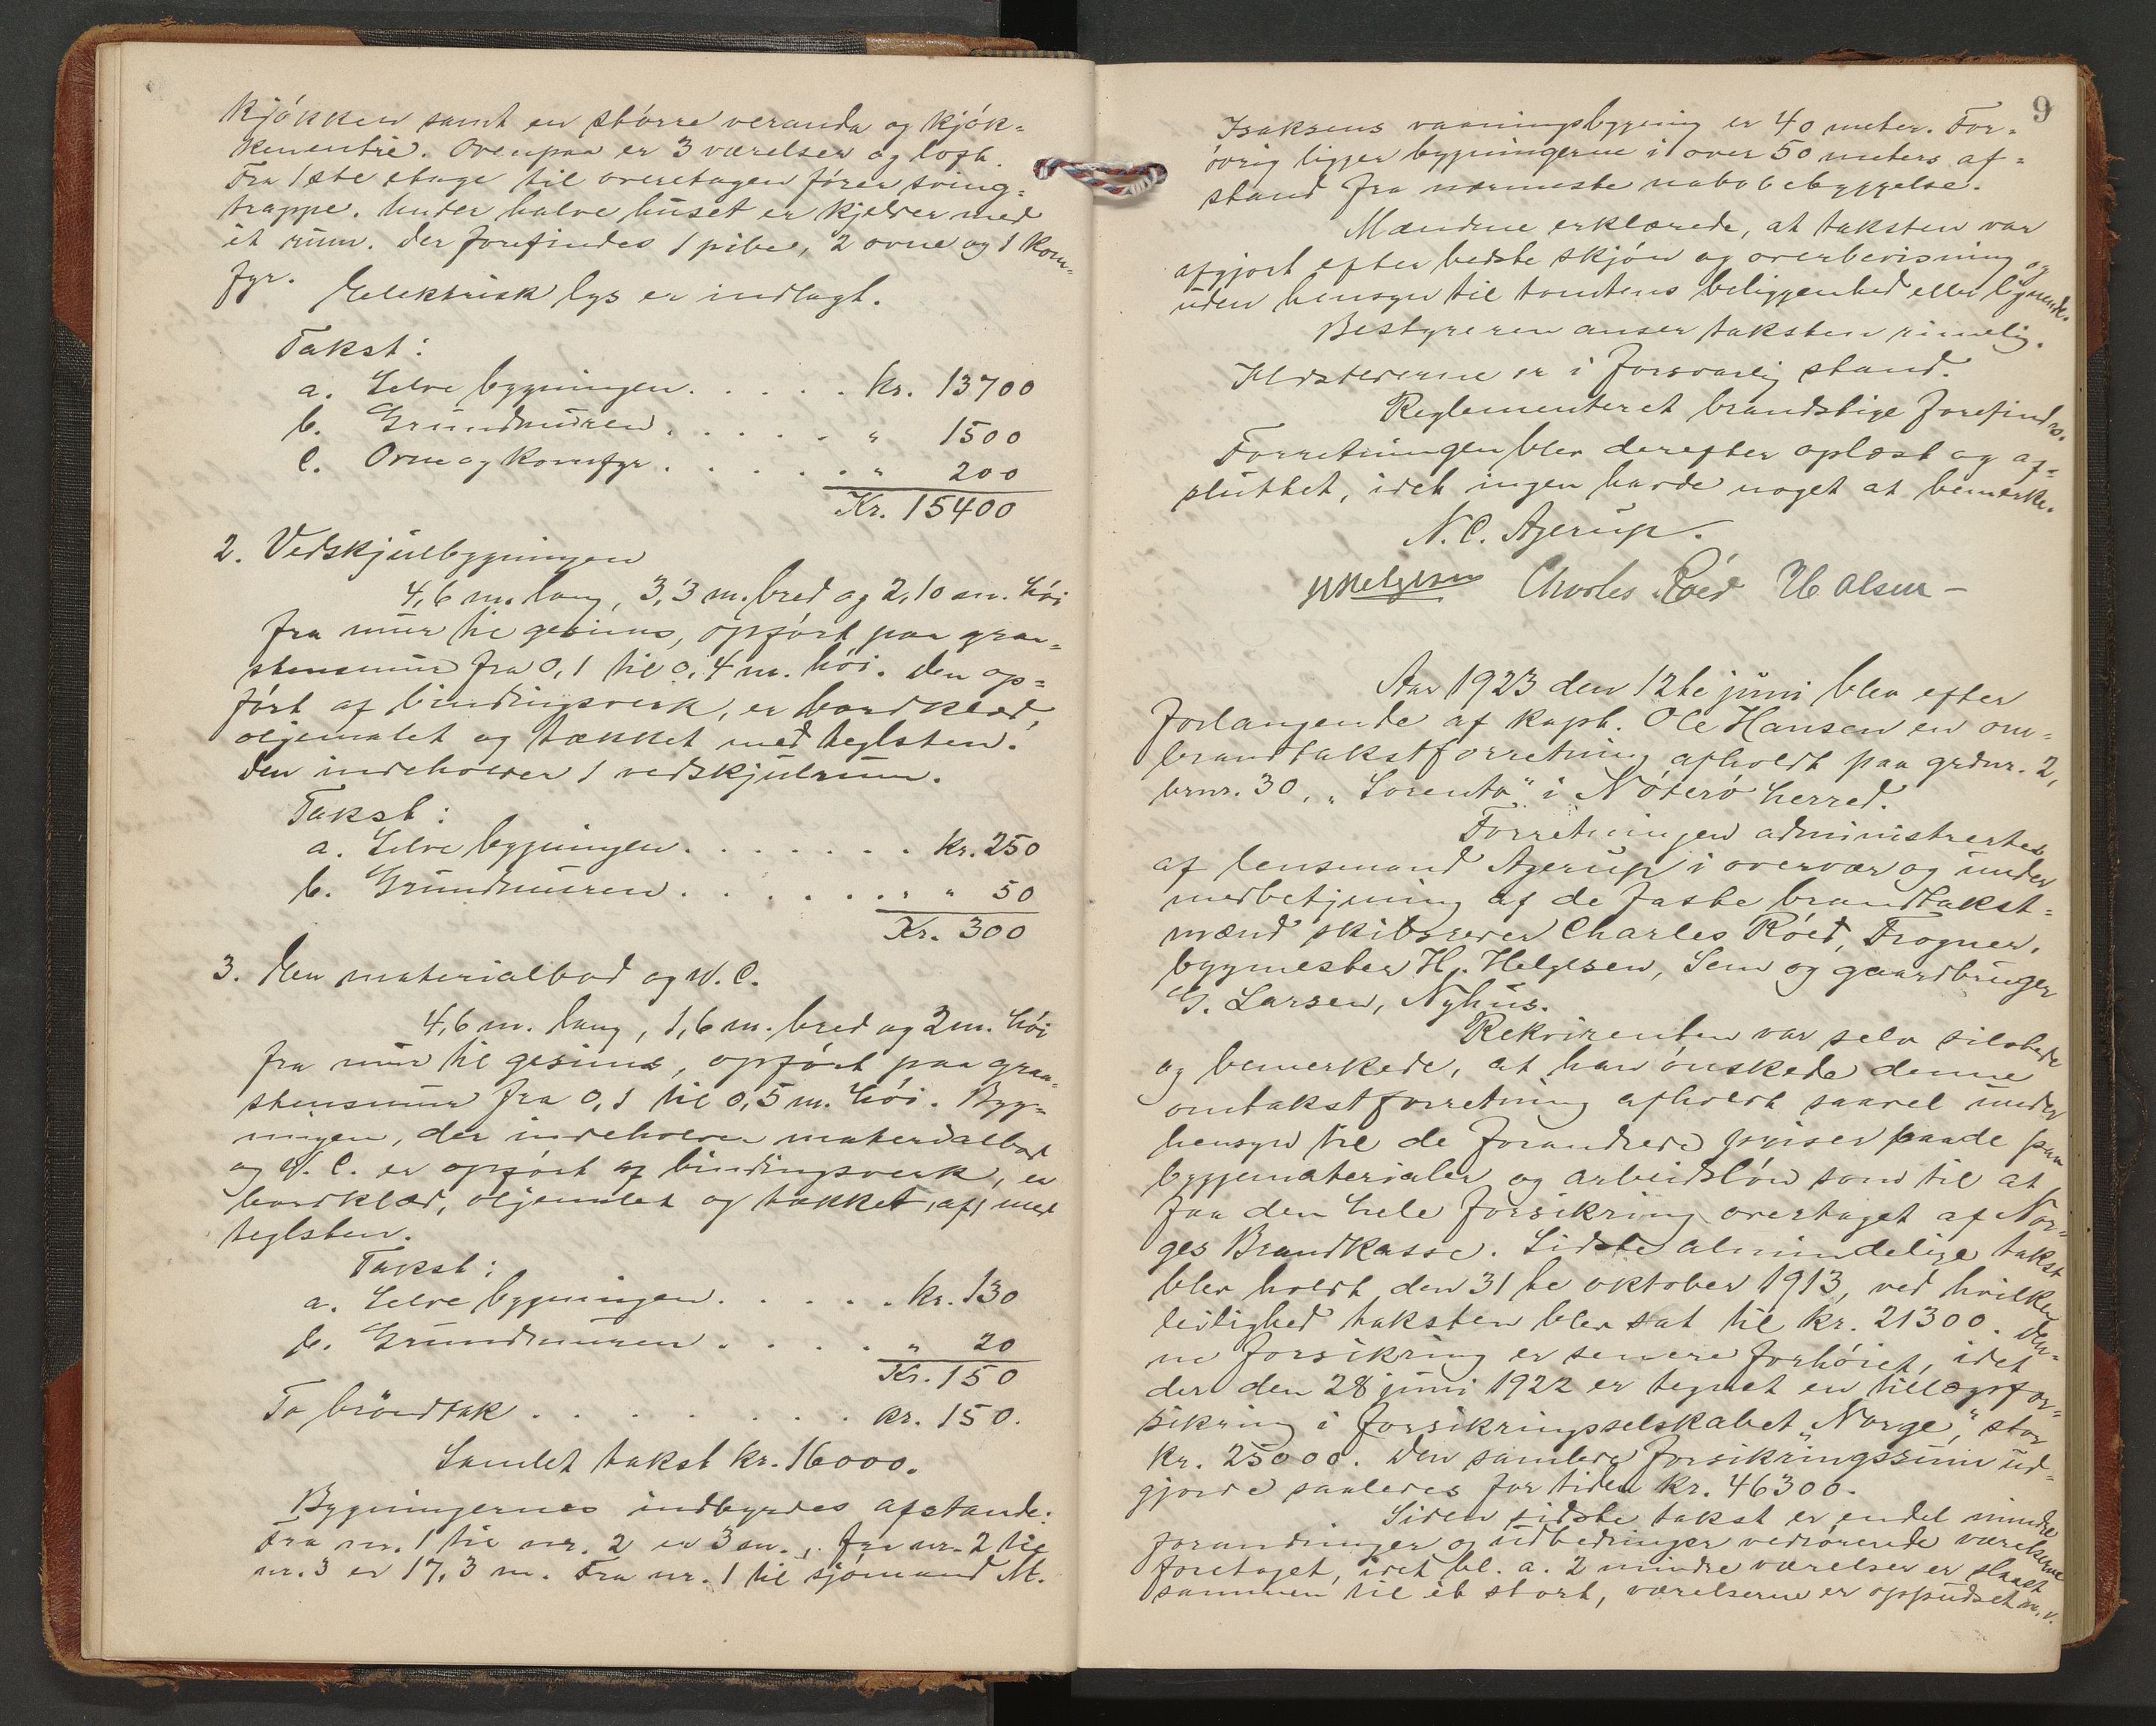 kjøkken samt en større veranda og kjøk-
kenentré. Ovenpaa er 3 værelser og loft.
Fra 1ste etage til overetagen fører sving-
trappe. Under halve huset er kjelder med
ét rum. Der forefindes 1 pibe, 2 ovne og 1 kom-
fyr.
Elektrisk lys er indlagt.
Takst:
a. Selve bygningen. . . . . kr. 13700
b. Grundmuren. . . . . . " 1500
c. Ovne og komfyr. . . . . . " 200
Kr. 15400
2. Vedskjulbygningen
4,6 m. lang, 3,3 m. bred og 2,10 m. høi
fra mur til gesims, opført paa graa-
stensmur fra 0,1 til 0,4 m. høi. Den op-
ført af bindingsverk, er bordklæd,
oljemalet og tækket med teglsten.
Den indeholder 1 vedskjulrum.
Takst:
a. Selve bygningen. . . . . . . kr. 250
b. Grundmuren. . . . . . . " 50
Kr. 300
3. Den materialbod og W.C.
4,6 m. lang, 1,6 m. bred og 2 m. høi
fra mur til gesims, opført paa graa-
stensmur fra 0,1 til 0,5 m. høi. Byg-
ningen, der indeholder materialbod
og W.C. er opført af bindingsverk, er
bordklæd, oljemalet og tækket, af, med
teglsten.
Takst:
a. Selve bygningen. . . . . kr. 130
b. Grundmuren. . . . . " 20
Kr. 150
To brøndtak . . . . . . . . kr. 150.
Samlet takst kr. 16000.
Bygningernes indbyrdes afstande:
Fra nr. 1 til nr. 2 er 3 m., fra nr. 2 til
nr. 3 er 17,3 m. Fra nr. 1 til sjømand M.
9
Isaksens vaaningsbygning er 40 meter. For-
øvrig ligger bygningerne i over 50 meters af-
stand fra nærmeste nabobebyggelse.
Mændene erklærede, at taksten var
afgjort efter bedste skjøn og overbevisning og
uden hensyn til tomtens beliggenhed eller lignende.
Bestyreren anser taksten rimelig.
Ildstederne er i forsvarlig stand.
Reglementeret brandstige forefindes.
Forretningen blev derefter oplæst og af-
sluttet, idet ingen havde noget at bemerke.
N. C. Agerup.
HHelgesen Charles Röed H Olsen –
Aar 1923 den 12te juni blev efter
forlangende af kapt. Ole Hansen en om-
brandtakstforretning afholdt paa grdnr. 2,
brnr. 30, "Sorento" i Nøterø herred.
Forretningen administrertes
af lensmand Agerup i overvær og under
medbetjening af de faste brandtakst-
mænd skibsreder Charles Röed, Frogner,
bygmester Hj. Helgesen, Sem og gaardbruger
G. Larsen, Nyhus.
Rekvirenten var selv tilstede
og bemerkede, at han ønskede denne
omtakstforretning afholdt saavel under
hensyn til de forandrede priser baade paa
byggematerialer og arbeidsløn som til at
faa den hele forsikring overtaget af Nor-
ges Brandkasse. Sidste almindelige takst
blev holdt den 31te oktober 1913, ved hvilken
leilighed taksten blev sat til kr. 21300. Den-
ne forsikring er senere forhøiet, idet
der den 28 juni 1922 er tegnet en tillægsfor-
sikring i forsikringsselskabet "Norge", stor
kr. 25000. Den samlede forsikringssum ud-
gjorde saaledes for tiden kr. 46300.
Siden sidste takst er endel mindre
forandringer og udbedringer vedrørende værelserne
foretaget, idet bl. a. 2 mindre værelser er slaaet
sammen til ét stort, værelserne er oppudset m. v.